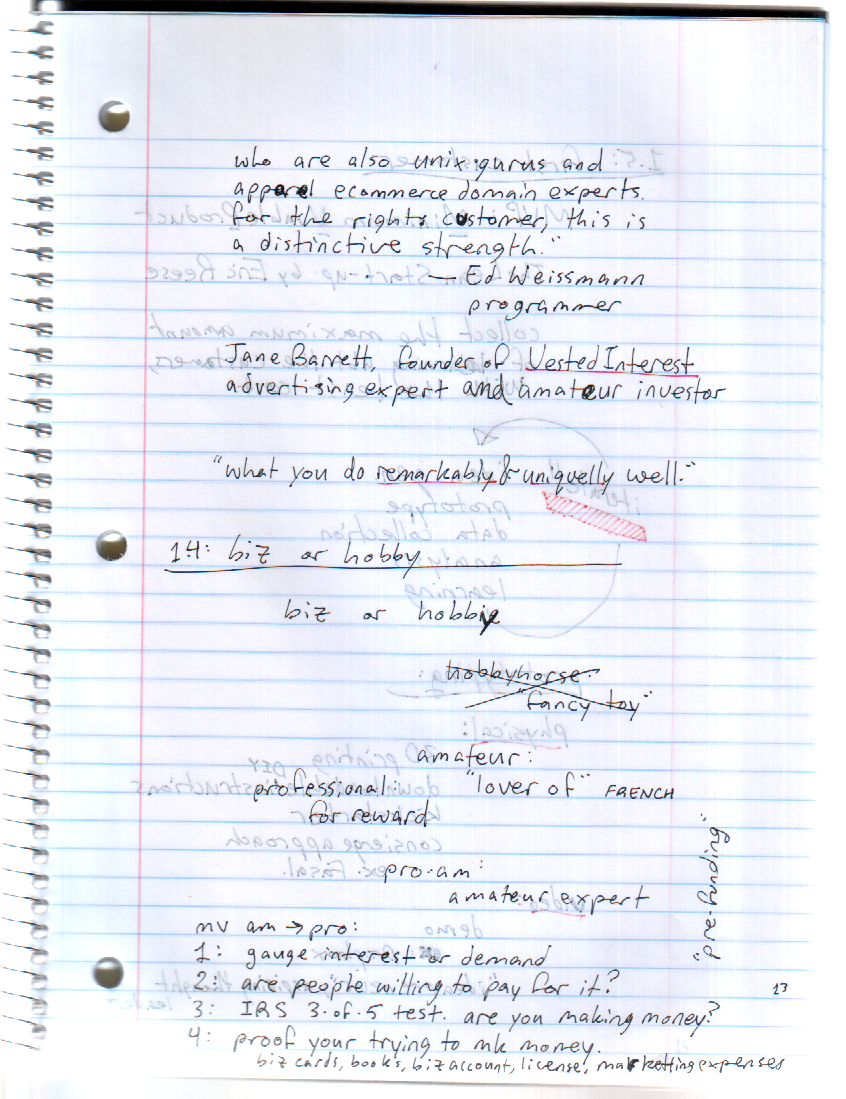 who are also unix gurus and
apparel ecommerce domain experts.
for the right customer, this is
a distinctive strength."
— Ed Weissmann
programmer
Jane Barrett, founder of Vested Interest
advertising expert and amateur investor
"what you do remarkably & uniquelly well."
1.4: biz or hobby
biz or hobby
hobbyhorse:
"fancy toy"
amateur:
professional: "lover of" FRENCH
for reward
pro·am:
amateur expert
"pre-funding"
mv am → pro:
1: gauge interest or demand
2: are people willing to pay for it?
13
3: IRS 3·of·5 test. are you making money?
4: proof your trying to mk money.
biz cards, books, biz account, license, marketting expenses